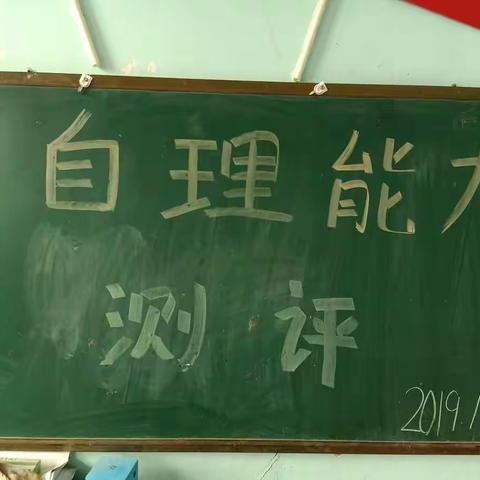 自理能
测评
2019.